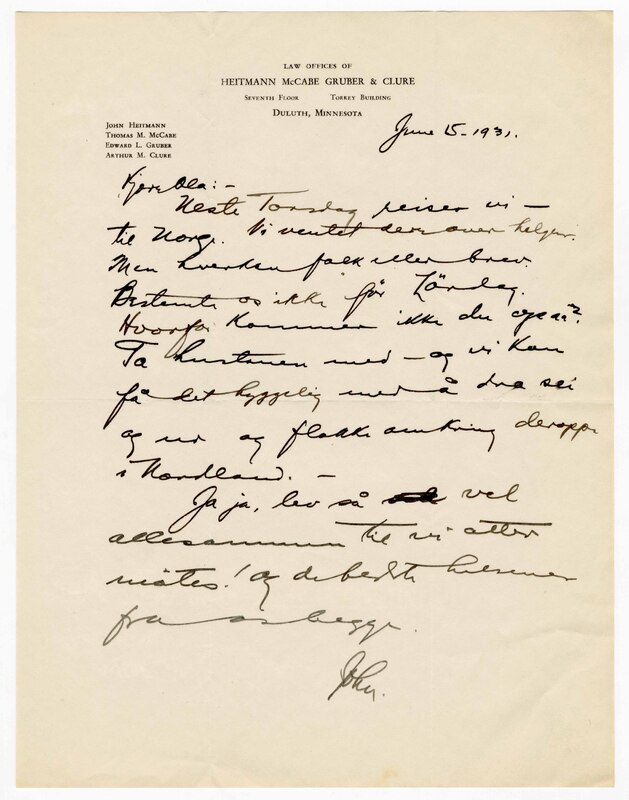 LAW OFFICES OF
HEITMANN McCABE GRUBER & CLURE
SEVENTH FLOOR TORREY BUILDING
DULUTH, MINNESOTA
JOHN HEITMANN
THOMAS M. McCABE
EDWARD L. GRUBER
ARTHUR M. CLURE
June 15-1931.
Kjære Ola:-
Neste Torsdag reiser vi —
til Norge. Vi ventet dere over helgen.
Men hverken folk eller brev.
Bestemte os ikke før Lördag.
Hvorfor kommer ikke du også?
Ta konen med — og vi kan
få det hyggelig med å dra sei
og ur og flakke omkring deroppe
i Nordland. —
Ja ja, lev så vel
allesammen til vi atter
mötes! Og de bedste hilsener
fra os begge.
John.